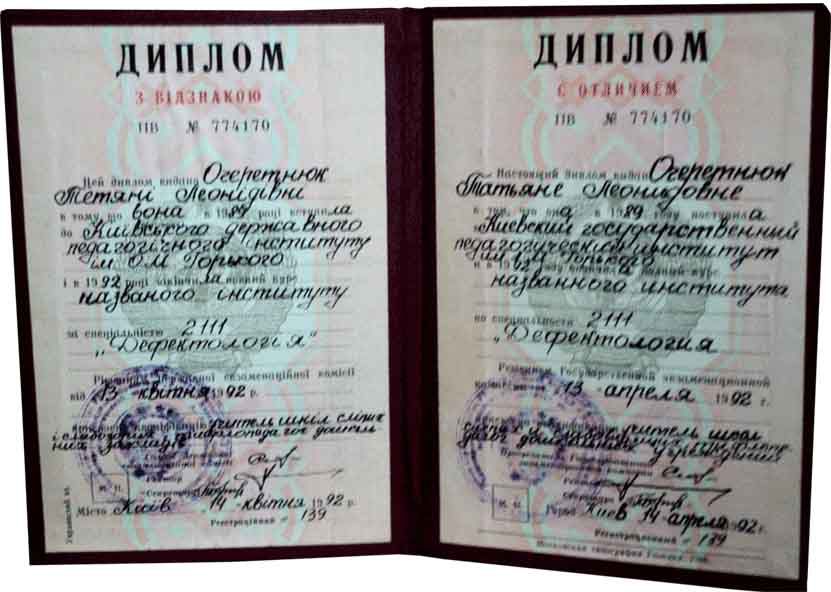 ДИПЛОМ
З ВІДЗНАКОЮ
ПВ № 774170
Цей диплом видано Огеретнюк
Тетяні Леонідівні
в тому, що вона в 1989 році вступила
до Київського державного
педагогічного інституту
ім. О.М. Горького
і в 1992 році закінчила повний курс
названого інституту
за спеціальністю 2111
„Дефектологія“
Рішенням Державної екзаменаційної комісії
від 13 квітня 1992 р.
учитель шкіл сліпих
і слабозорих тифлопедагог
Ректор
Секретар
М. П.
Місто Київ 14 квітня 1992 р.
Реєстраційний № 139
Украинский яз.
ДИПЛОМ
С ОТЛИЧИЕМ
ПВ № 774170
Настоящий диплом выдан Огеретнюк
Татьяне Леонидовне
в том, что она в 1989 году поступила
в Киевский государственный
педагогический институт
им. А.М. Горького
и в 1992 году окончила полный курс
названного института
по специальности 2111
„Дефектология
Решением Государственной экзаменационной
комиссии от 13 апреля 1992 г.
учитель школ
учреждений
Ректор
Секретарь
М. П.
Город Киев 14 апреля 1992 г.
Регистрационный № 139
Московская типография Гознака.